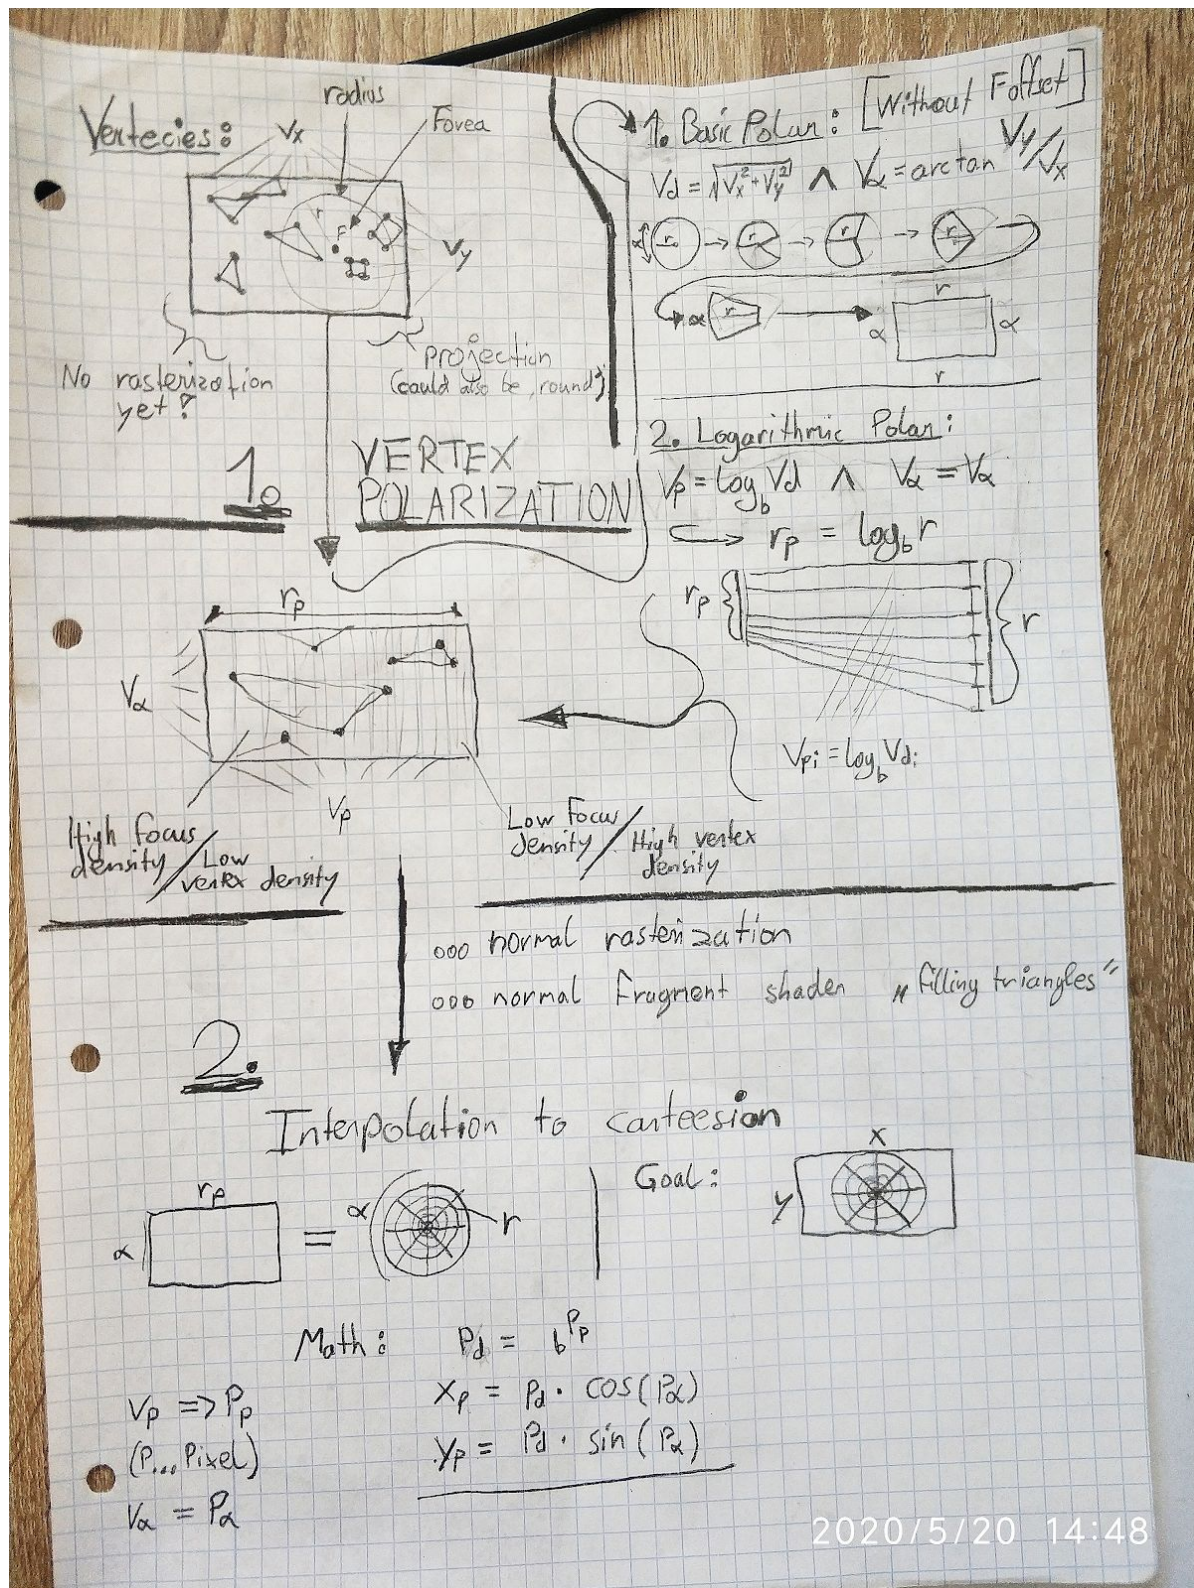 Vertecies:
radius
Fovea
Vx
r
F
Vy
No rasterization
yet!
projection
(could also be "round")
1.
VERTEX
POLARIZATION
1. Basic Polar: [Without Foffset]
Vd = √Vx²+Vy² ∧ Vα = arctan Vy/Vx
α r → r → r → r
α r → α r α
r
2. Logarithmic Polar:
Vp = log_b Vd ∧ Vα = Vα
↪ rp = log_b r
rp
r
Vpi = log_b Vdi
rp
Vα
Vp
High focus
density / Low
vertex density
Low Focus
density / High vertex
density
ooo normal rasterization
ooo normal fragment shader „filling triangles“
2.
Interpolation to carteesian
rp
α = α r
Goal:
x
y
Math: Pd = b^Pp
xp = Pd · cos(Pα)
yp = Pd · sin(Pα)
Vp => Pp
(P... Pixel)
Vα = Pα
2020/5/20 14:48